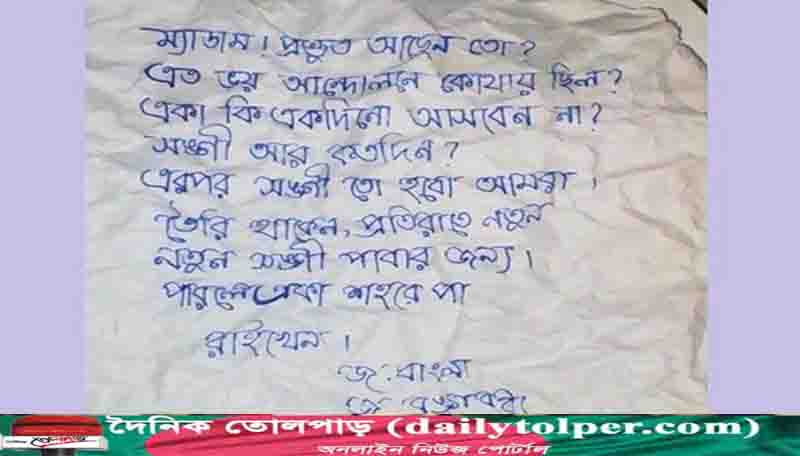 ম্যাডাম! প্রস্তুত আছেন তো?
এত ভয় আন্দোলনে কোথায় ছিল?
একা কি একদিনো আসবেন না?
সঙ্গী আর কতদিন?
এরপর সঙ্গী তো হবো আমরা।
তৈরি থাকেন, প্রতিরাতে নতুন
নতুন সঙ্গী পাবার জন্য।
পারলে একা শহরে পা
রাইখেন।
জয় বাংলা
জয় বঙ্গবন্ধু
দৈনিক তোলপাড় (dailytolper.com)
অনলাইন নিউজ পোর্টাল